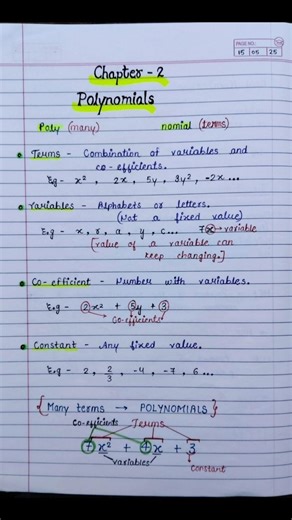 PAGE NO.:
15 05 25
Chapter - 2
Polynomials
Poly (many) nomial (terms)
Terms - Combination of variables and
co-efficients.
Eg - x², 2x, 5y, 3y², -2x ...
Variables - Alphabets or letters.
(Not a fixed value)
E.g - x, r, a, y, c... 7x → variable
[value of a variable can
keep changing.]
Co-efficient - Number with variables.
E.g - 2x² + 5y + 3
Co-efficients
Constant - Any fixed value.
E.g - 2, 2/3, -4, -7, 6 ...
{Many terms → POLYNOMIALS}
Co-efficients Terms
7x² + 4x + 3
variables
Constant